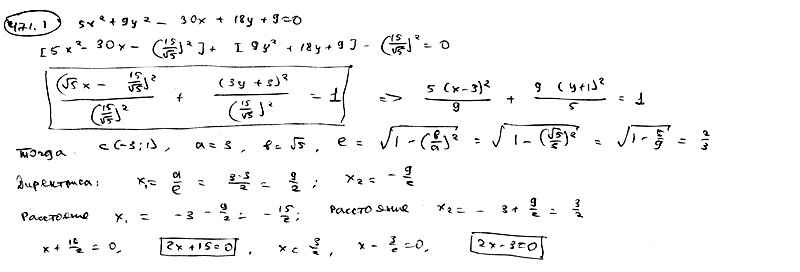 471.1 5x² + 9y² - 30x + 18y + 9 = 0
[5x² - 30x - (15/√5)²] + [9y² + 18y + 9] - (15/√5)² = 0
(√5x - 15/√5)²/(15/√5)² + (3y + 3)²/(15/√5)² = 1 => 5(x-3)²/9 + 9(y+1)²/5 = 1
Тогда c(-3;1), a = 3, b = √5, e = √(1 - (b/a)²) = √(1 - (√5/3)²) = √(1 - 5/9) = 2/3
Директриса: x₁ = a/e = 3·3/2 = 9/2; x₂ = -9/2
Расстояние x₁ = -3 - 9/2 = -15/2; Расстояние x₂ = -3 + 9/2 = 3/2
x + 15/2 = 0, 2x + 15 = 0, x = 3/2, x - 3/2 = 0, 2x - 3 = 0